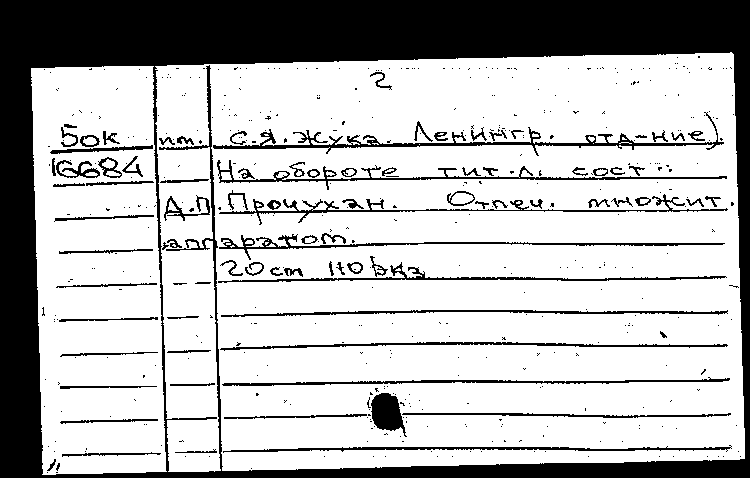 2
5ок ит. С.Я. Жука. Ленингр. отд-ние).
16684 На обороте тит. л. сост.:
Д.П. Прочухан. Отпеч. множит.
аппаратом.
20 cm 110 экз